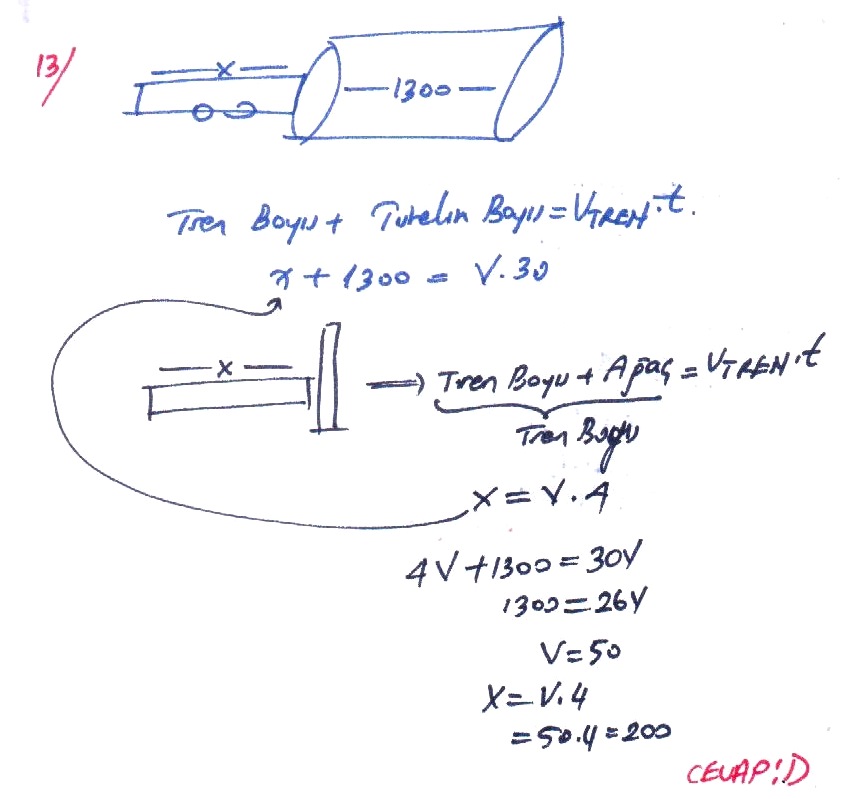 13/
x
1300
Tren Boyu + Tünelin Boyu = VTREN.t.
x + 1300 = V.30
x
Tren Boyu + Ağaç = VTREN.t
Tren Boyu
x = V.4
4V + 1300 = 30V
1300 = 26V
V = 50
X = V.4
= 50.4 = 200
CEVAP:D